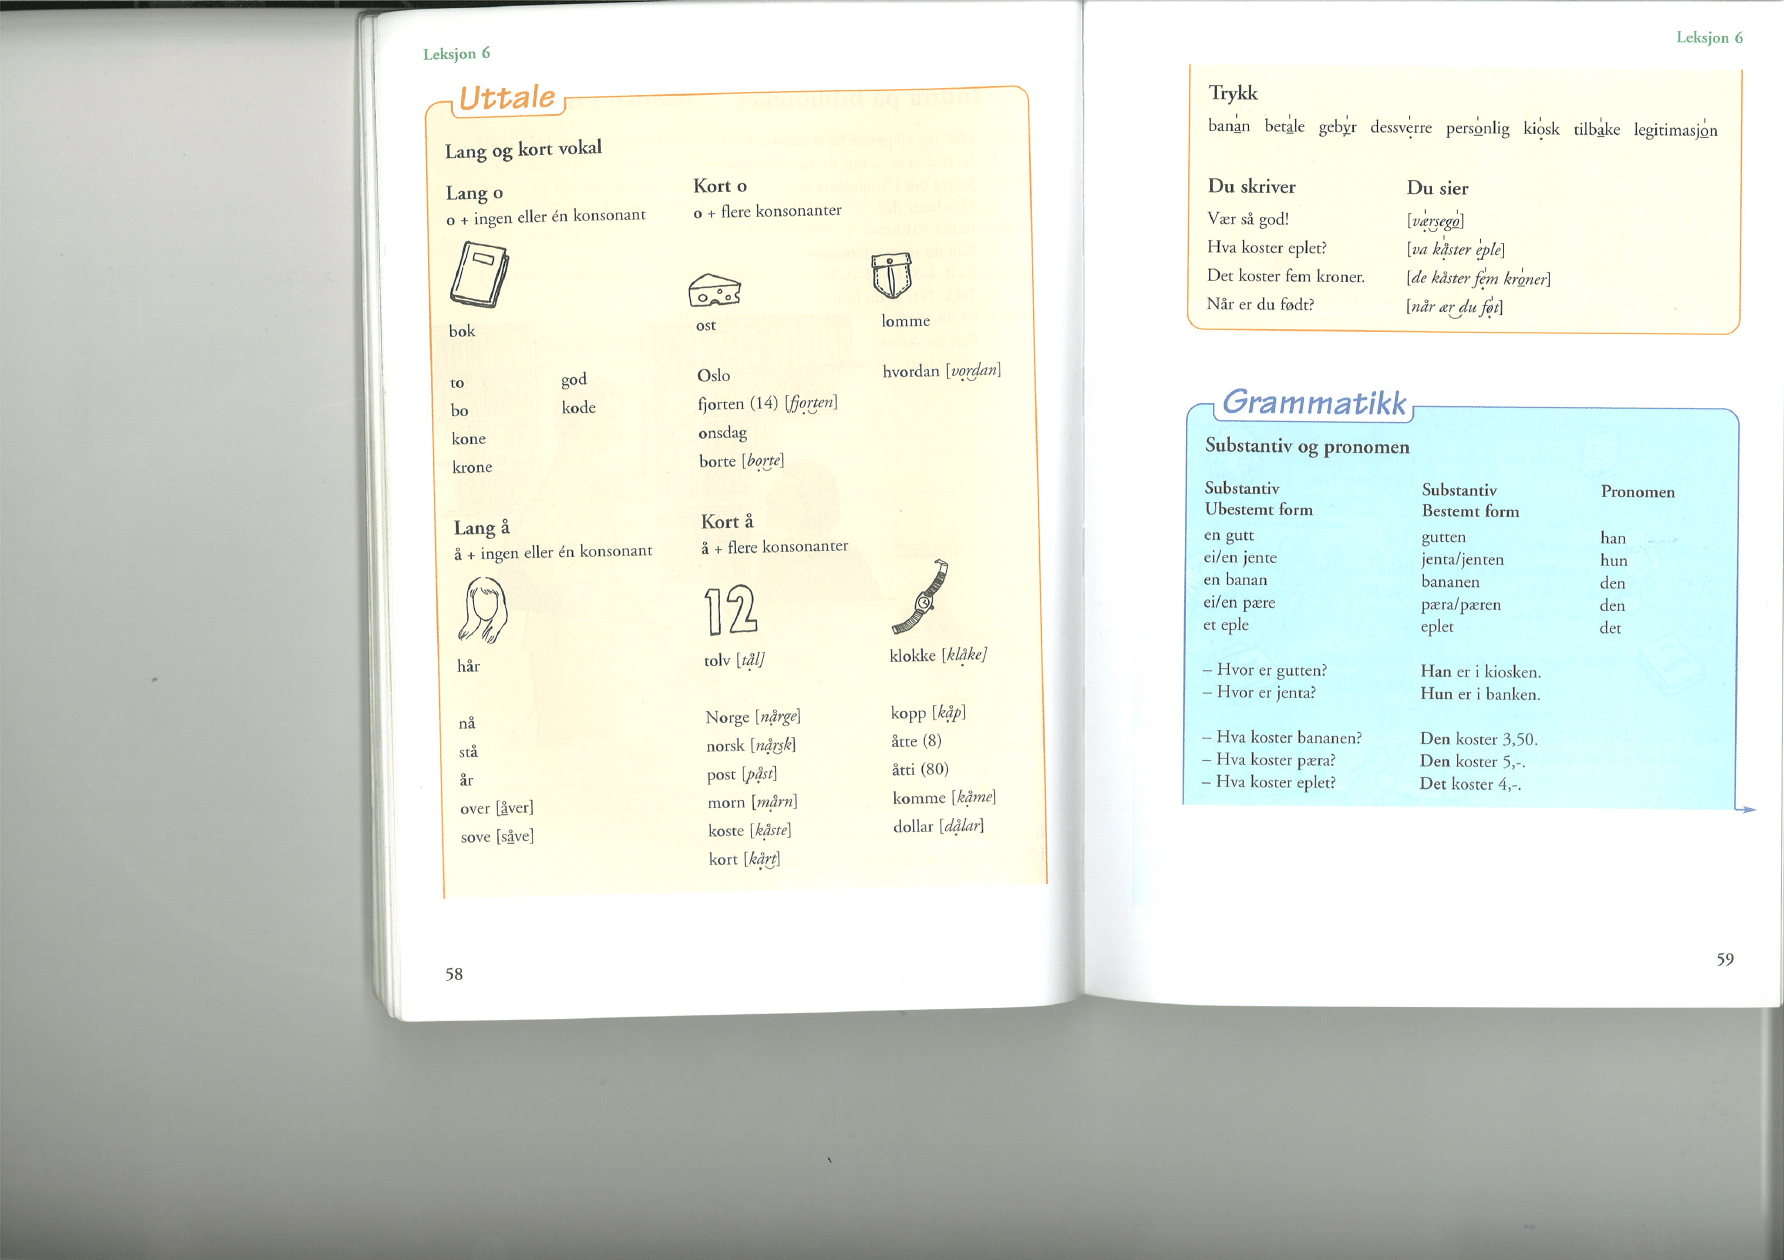 Leksjon 6
Uttale
Lang og kort vokal
Lang o
o + ingen eller én konsonant
bok
to
bo
kone
krone
god
kode
Kort o
o + flere konsonanter
ost
lomme
Oslo
fjorten (14) [fjorten]
onsdag
borte [borte]
hvordan [vordan]
Lang å
å + ingen eller én konsonant
hår
nå
stå
år
over [åver]
sove [såve]
Kort å
å + flere konsonanter
12
tolv [tål]
klokke [klåke]
Norge [nårge]
norsk [nårsk]
post [påst]
morn [mårn]
koste [kåste]
kort [kårt]
kopp [kåp]
åtte (8)
åtti (80)
komme [kåme]
dollar [dålar]
58
Leksjon 6
Trykk
banan betale gebyr dessverre personlig kiosk tilbake legitimasjon
Du skriver Du sier
Vær så god! [værsego]
Hva koster eplet? [va kåster eple]
Det koster fem kroner. [de kåster fem kroner]
Når er du født? [når ær du føt]
Grammatikk
Substantiv og pronomen
Substantiv Substantiv Pronomen
Ubestemt form Bestemt form
en gutt gutten han
ei/en jente jenta/jenten hun
en banan bananen den
ei/en pære pæra/pæren den
et eple eplet det
– Hvor er gutten? Han er i kiosken.
– Hvor er jenta? Hun er i banken.
– Hva koster bananen? Den koster 3,50.
– Hva koster pæra? Den koster 5,-.
– Hva koster eplet? Det koster 4,-.
59